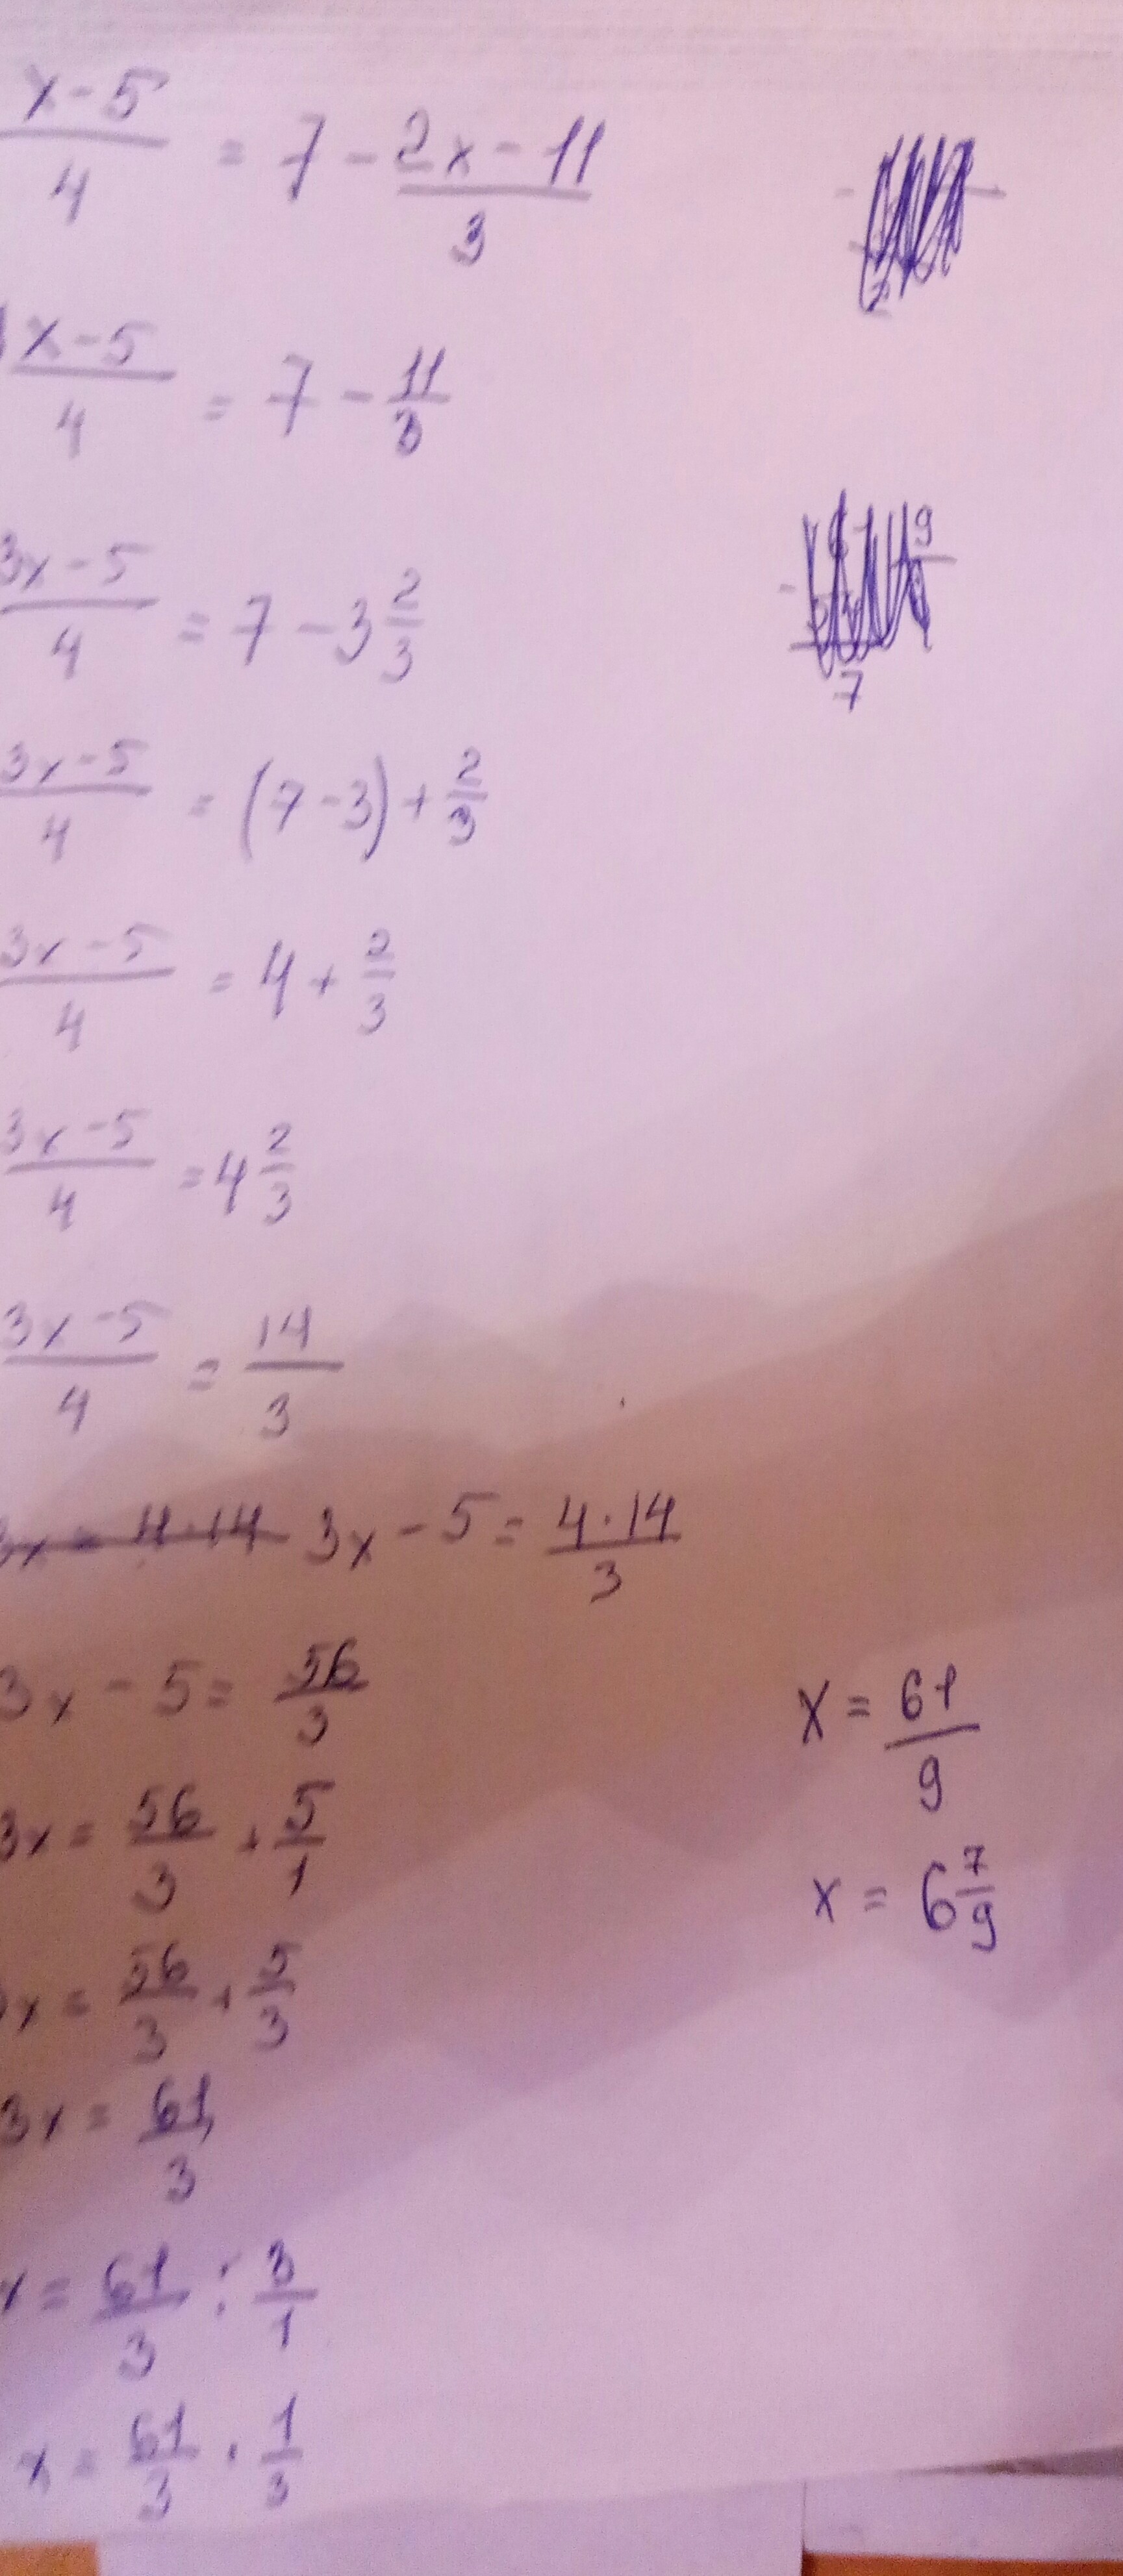 x-5/4 = 7 - 2x-11/3
x-5/4 = 7 - 11/3
3x-5/4 = 7 - 3 2/3
3x-5/4 = (7-3) + 2/3
3x-5/4 = 4 + 2/3
3x-5/4 = 4 2/3
3x-5/4 = 14/3
3x = 4·14 3x - 5 = 4·14/3
3x - 5 = 56/3
3x = 56/3 + 5/1
x = 56/3 + 5/3
3x = 61/3
x = 61/3 : 3/1
x = 61/3 · 1/3
9
7
x = 61/9
x = 6 7/9